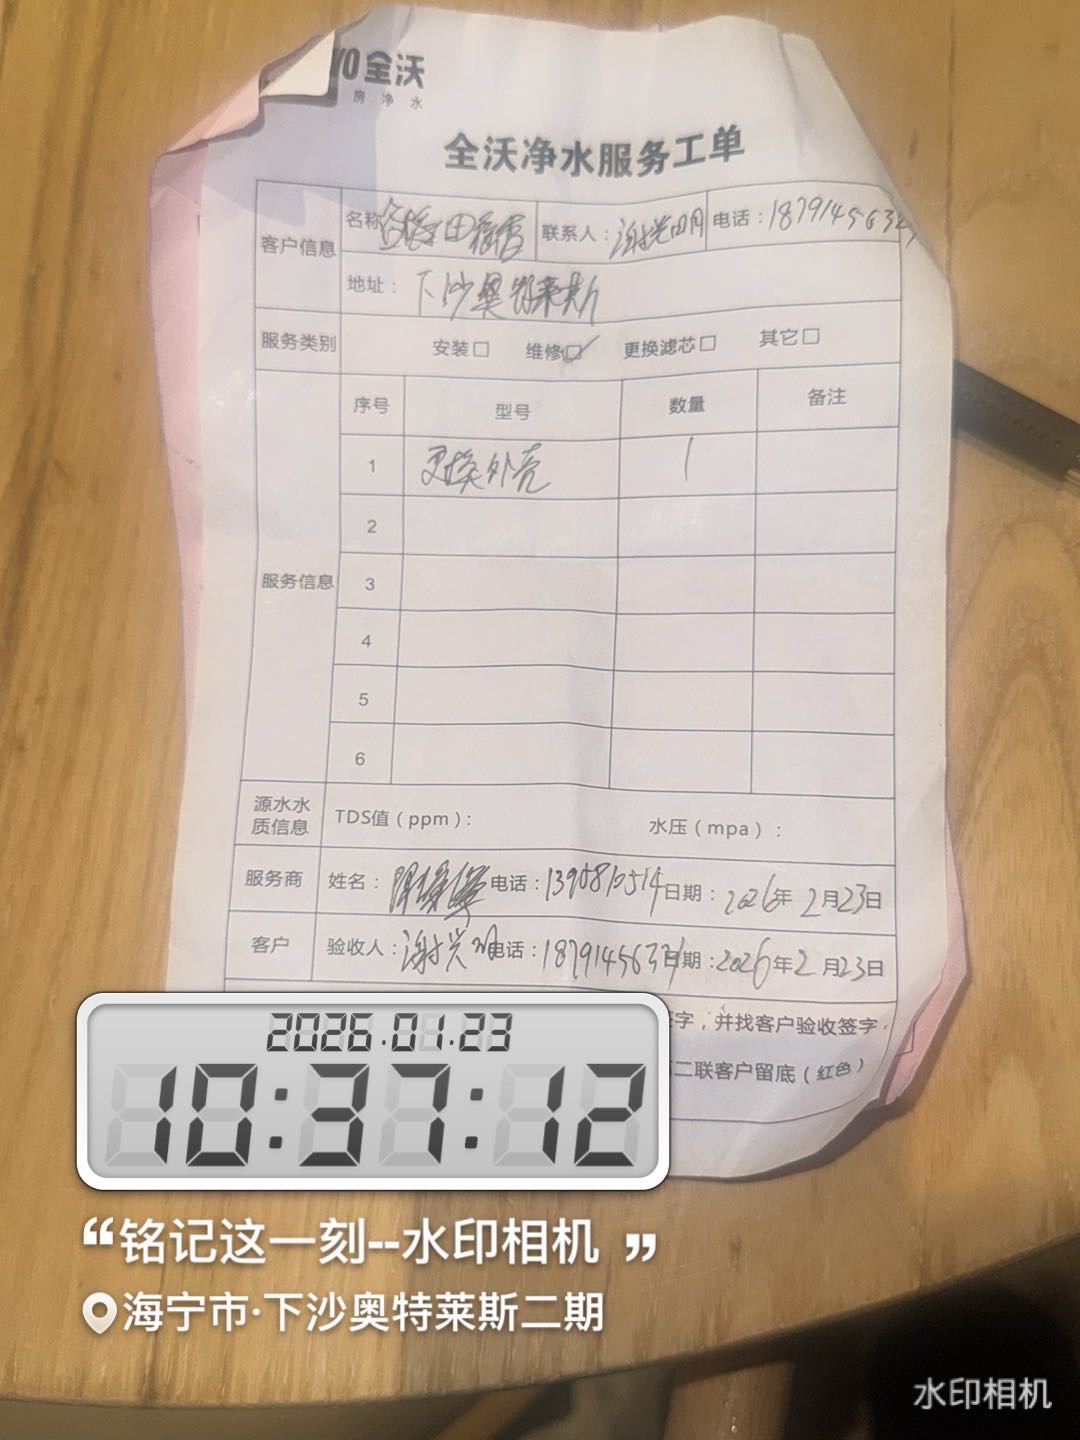 YO全沃
房净水
全沃净水服务工单
客户信息 名称 联系人：谢兴明 电话：1879145634
地址：下沙奥特莱斯
服务类别 安装□ 维修□✓ 更换滤芯□ 其它□
服务信息 序号 型号 数量 备注
1 更换外壳 1
2
3
4
5
6
源水水质信息 TDS值（ppm）： 水压（mpa）：
服务商 姓名： 电话：1395810514 日期：2026年2月23日
客户 验收人：谢兴明 电话：187914563 日期：2026年2月23日
签字，并找客户验收签字，
二联客户留底（红色）
2026.01.23
10:37:12
“铭记这一刻--水印相机”
海宁市·下沙奥特莱斯二期
水印相机